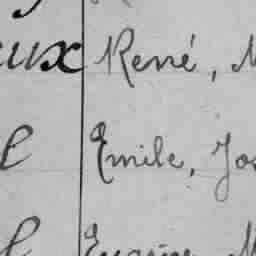 ux René, M
l Emile, Jos
l Eugène, M